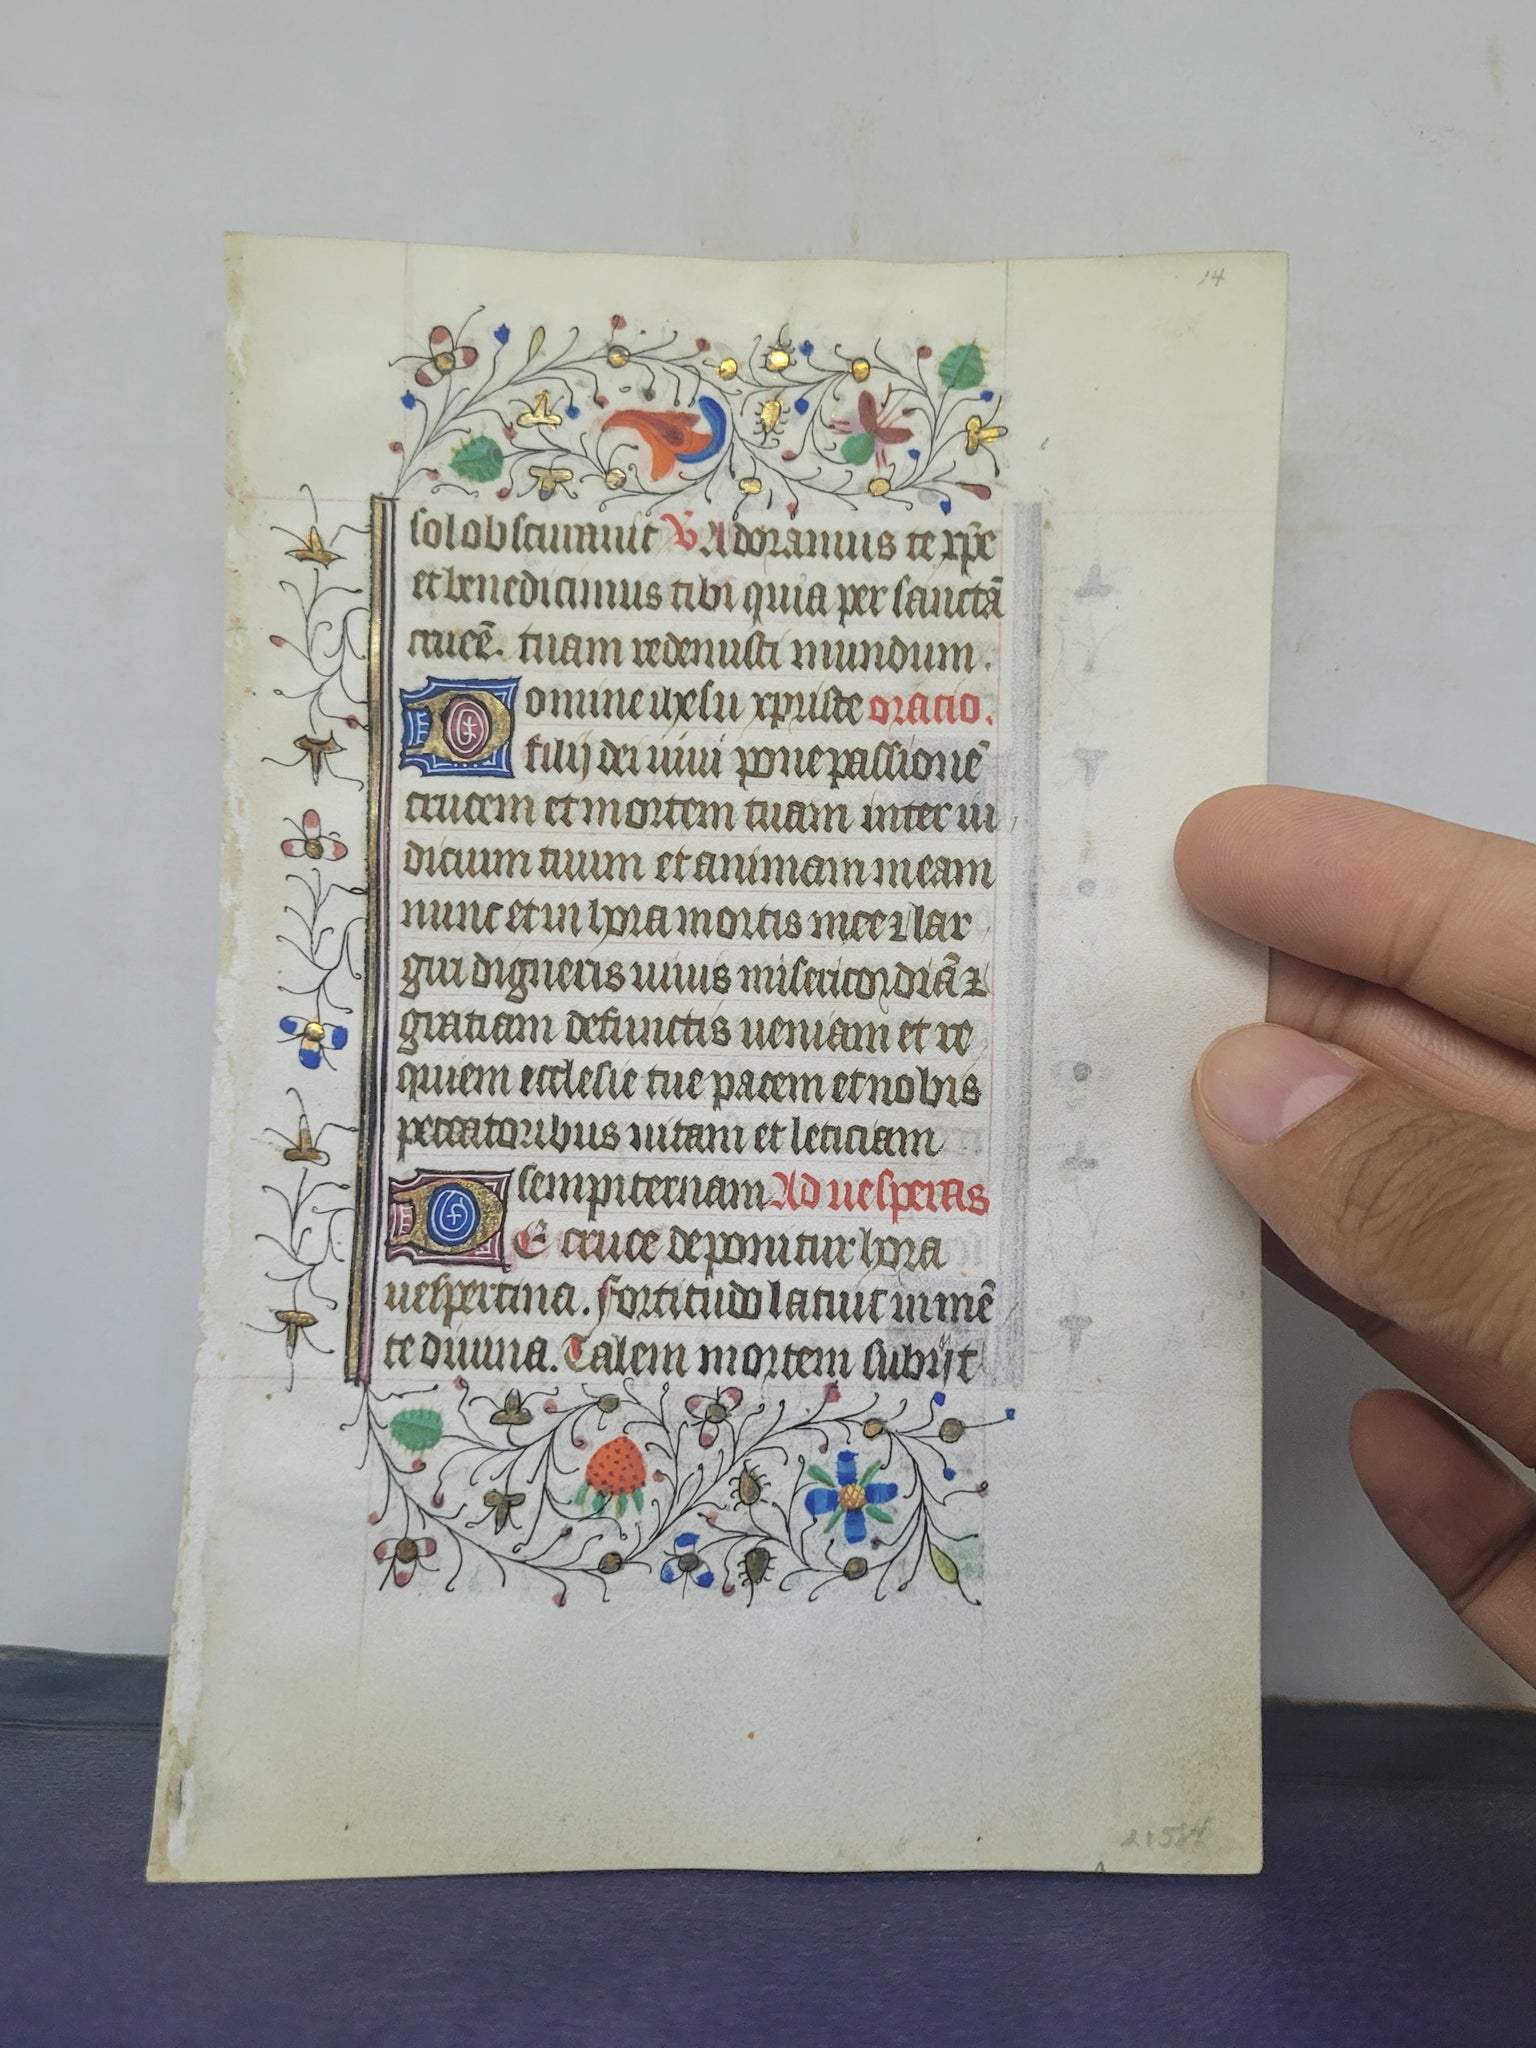 14
sol obscurauit ℣ Adoramus te xp̄e
et benedicimus tibi quia per sanctā
crucē. tuam redemisti mundum.
Domine ihesu xpriste oracio.
filij dei uiui pone passionē
crucem et mortem tuam inter iu
dicium tuum et animam meam
nunc et in hora mortis mee ⁊ lar
giri digneris uiuis misericordiā ⁊
gratiam defunctis ueniam et re
quiem ecclesie tue pacem et nobis
peccatoribus uitam et leticiam
sempiternam Ad uesperas
DE cruce deponitur hora
uespertina. fortitudo latuit in mē
te diuina. Talem mortem subijt